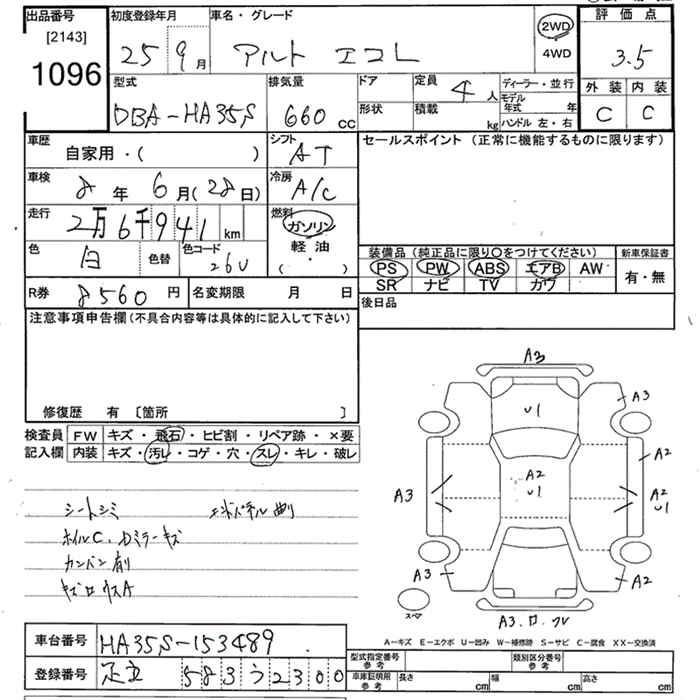 出品番号
[2143]
1096
初度登録年月
25 9月
車名・グレード
アルト エコL
2WD
4WD
評価点
3.5
外装 内装
C C
型式
DBA-HA35S
排気量
660 cc
ドア
形状
定員
4人
積載
kg
ディーラー・並行
モデル年式 年
ハンドル 左・右
車歴
自家用・( )
シフト
AT
セールスポイント (正常に機能するものに限ります)
車検
8年 6月(28日)
冷房
A/C
走行
2万6千941km
燃料
ガソリン
軽油
( ・ )
色
白
色替
色コード
26U
装備品 (純正品に限り○をつけてください)
PS PW ABS エアB AW
SR ナビ TV ガワ
新車保証書
有・無
R券 8560円
名変期限 月 日
後日品
注意事項申告欄 (不具合内容等は具体的に記入して下さい)
修復歴 有 [箇所 ]
検査員
記入欄
FW キズ・飛石・ヒビ割・リペア跡・×要
内装 キズ・汚レ・コゲ・穴・スレ・キレ・破レ
シートシミ
ホイルC、Dミラーキズ
カンバン有り
A3
U1
A3
A2
A2
U1
A3
A2
U1
A3
A2
スペア
A-キズ E-エクボ U-凹み W-補修跡 S-サビ C-腐食 XX-交換済
車台番号 HA35S-153489
登録番号 足立 583う2300
型式指定番号
参考
類別区分番号
参考
車庫証明用
参考
長さ cm
幅 cm
高さ cm